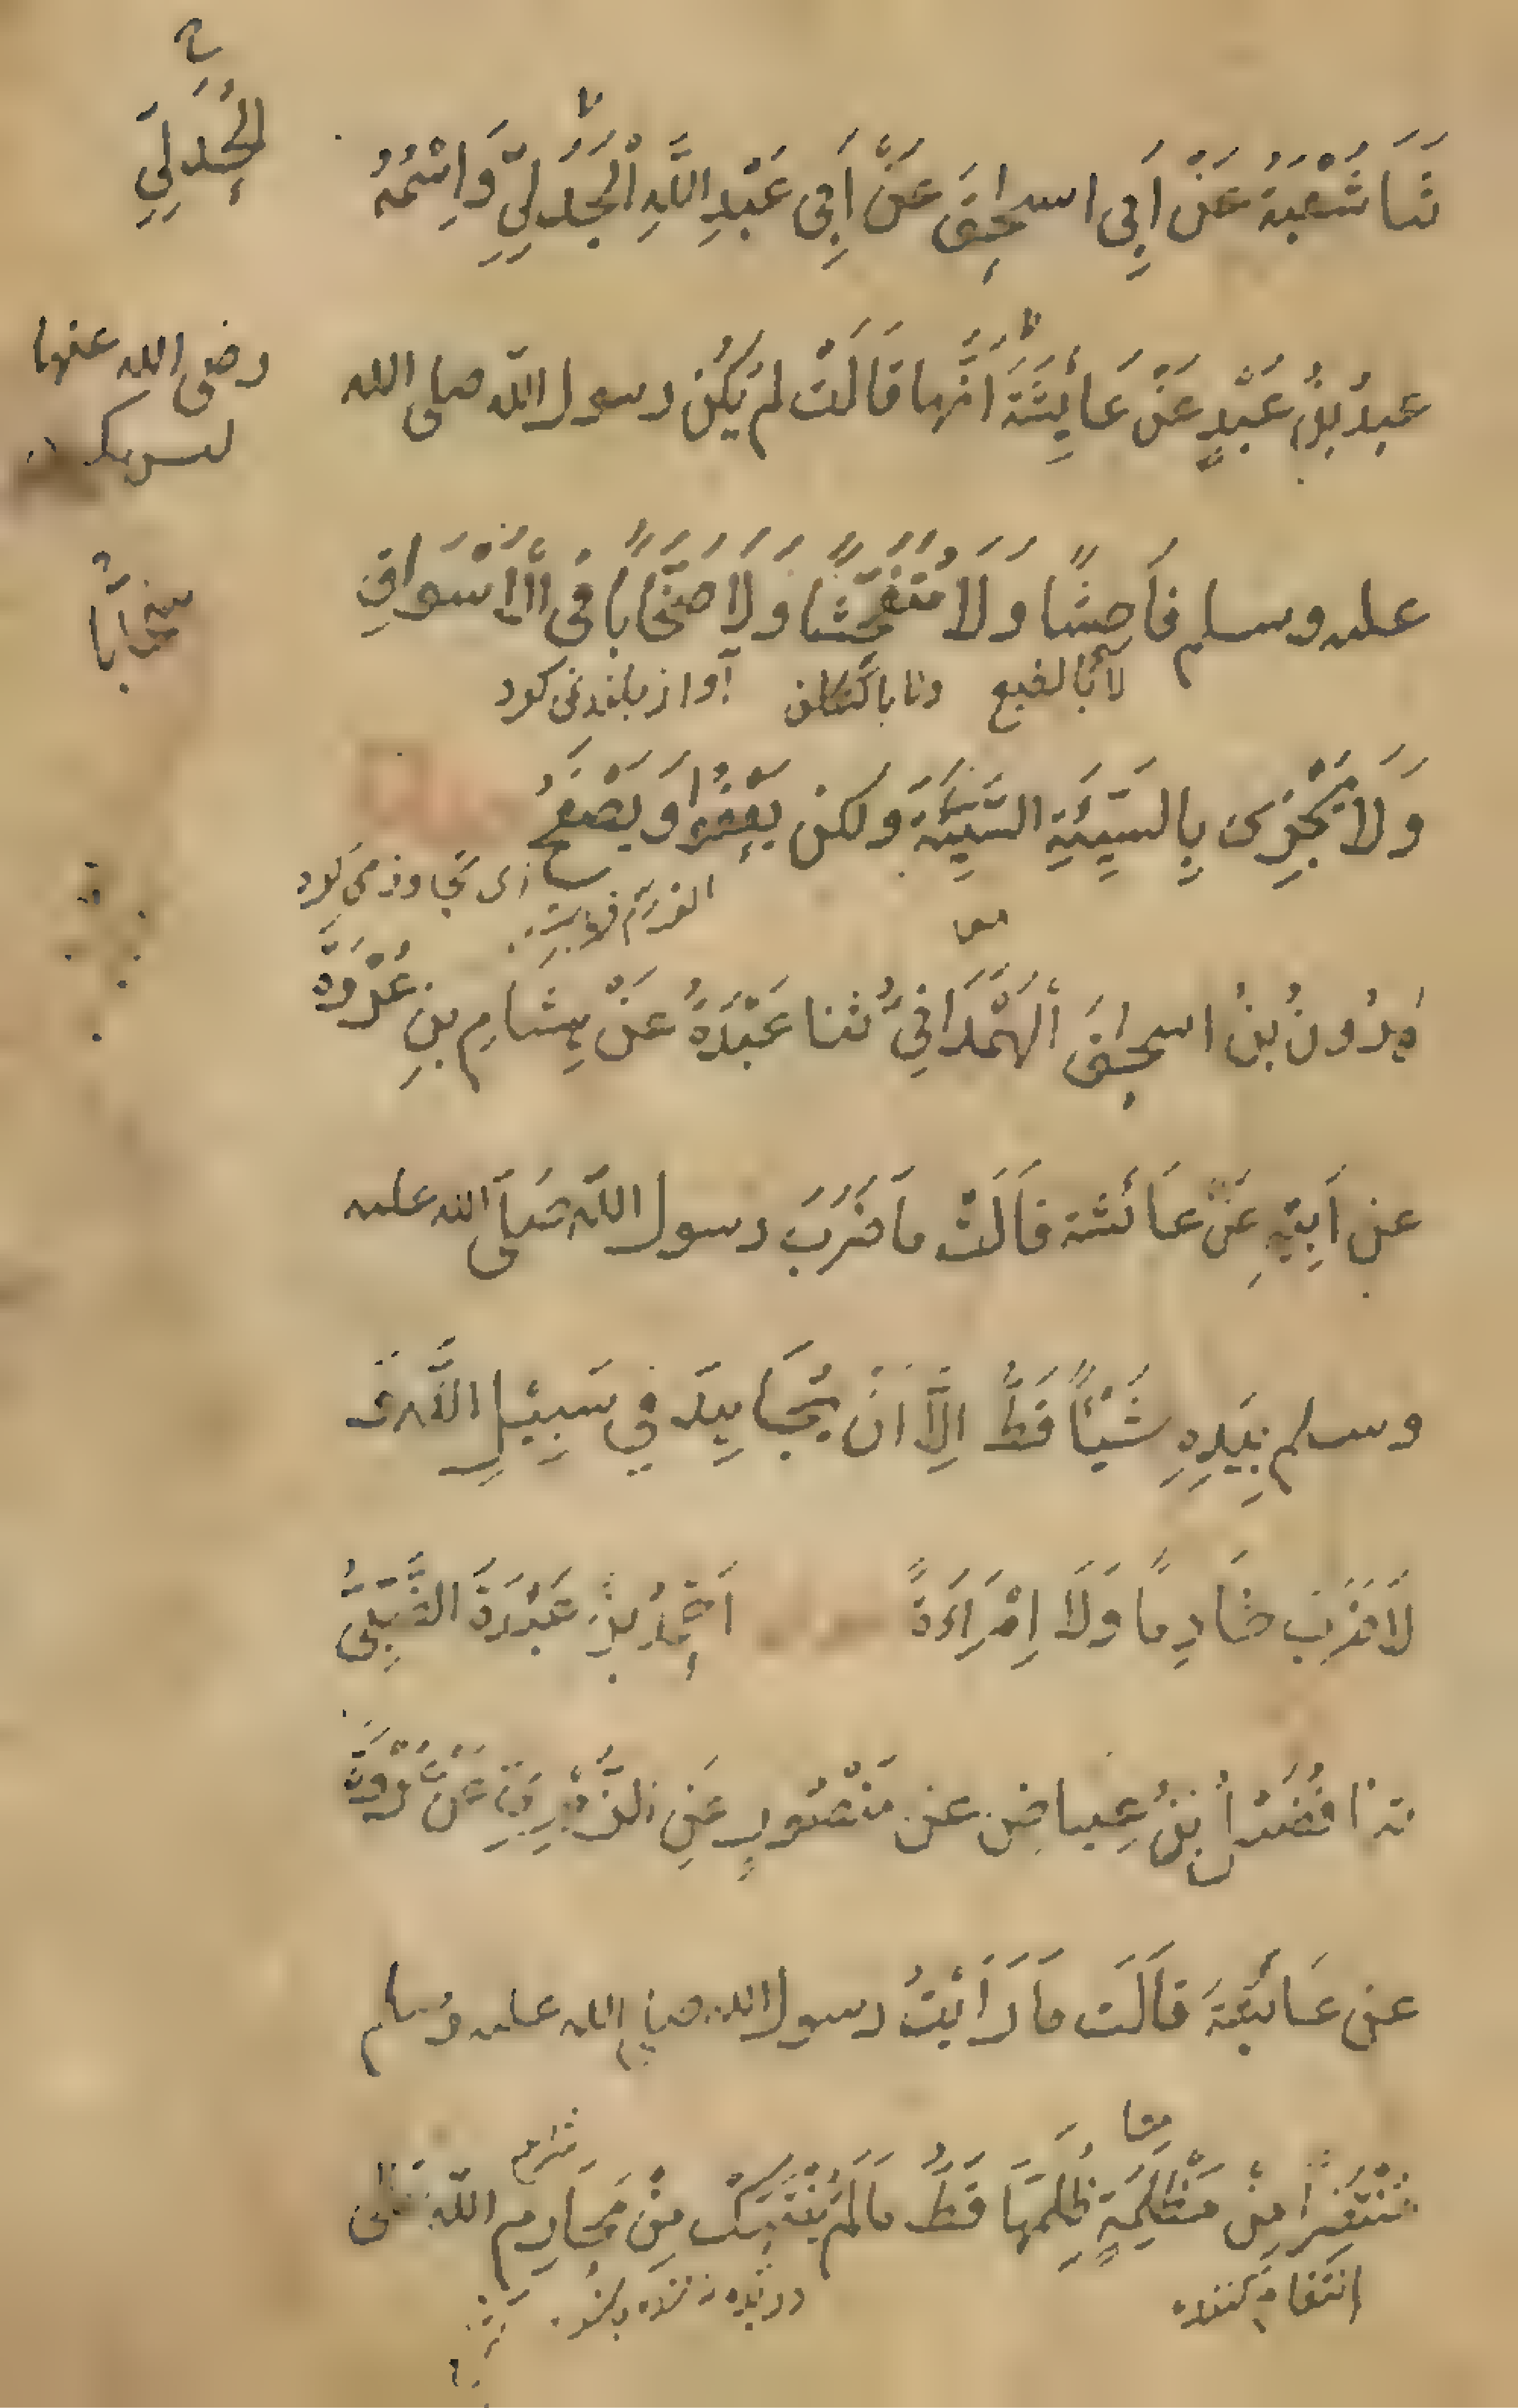 ثَنَا شُعْبَةُ عَنْ اَبِى اسحٰقَ عَنْ اَبِى عَبْدِ اللَّهِ الْجَدَلِىِّ وَاِسْمُهُ
الجُدَلِيِّ
عبدُ بنُ عَبْدٍ عَنْ عَائِشَةَ اَنَّها قَالَتْ لَمْ يَكُنْ رسول اللّه صلى الله
رضى الله عنها
عليه وسلم فَاحِشًا وَلَا مُتَفَحِّشًا وَلَا صَخَّابًا فِى الْاَسْوَاقِ
سَخَّابًا
آواز بلند نمى كرد
وَلَا يَجْزِى بِالسَّيِّئَةِ السَّيِّئَةَ وَلكن يَعْفُوْا وَيَصْفَحُ
اى تجاوز مى كرد
هٰرُونُ بنُ اسحٰقَ اَلْهَمْدَانِىُّ ثنا عَبْدَةُ عَنْ هِشَامِ بنِ عُرْوَةَ
عن اَبِيْهِ عَنْ عَائشة قَالَتْ مَا ضَرَبَ رسول اللّه صَلَى الله عليه
وسلم بِيَدِهِ شَيْأً قَطُّ اِلَّا اَنْ يُجَاهِدَ فِي سَبِيْلِ اللَّهِ وَ
لَا ضَرَبَ خَادِمًا وَلَا اِمْرَاَةً اَحْمَدُ بنُ عَبْدَةَ الضَّبِّىُّ
نا فُضَيْلُ بنُ عِياضٍ عن مَنْصُورٍ عَنِ الزُّهْرِيِّ عَنْ عُرْوَةَ
عن عَائشَةَ قَالَت مَا رَاَيْتُ رسول الله صلى الله عليه وسلم
مُنْتَصِرًا مِنْ مَظْلِمَةٍ ظُلِمَهَا قَطُّ مَا لَمْ يُنْتَهَكْ مِنْ مَحَارِمِ اللّهِ
انتقام كننده